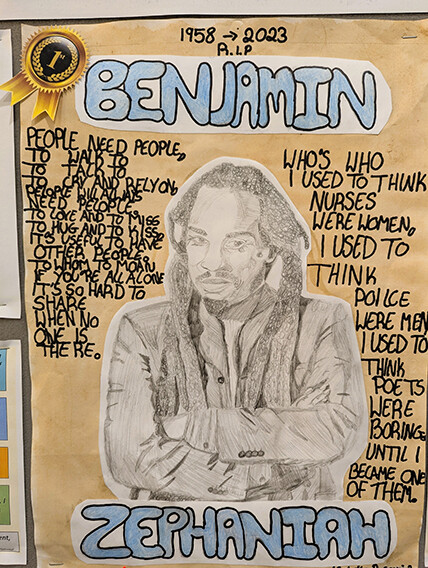 1958 → 2023
R.I.P
1st
BENJAMIN
PEOPLE NEED PEOPLE,
TO WALK TO
TO TALK TO
TO CRY AND RELY ON,
PEOPLE WILL ALWAYS
NEED PEOPLE.
TO LOVE AND TO MISS
TO HUG AND TO KISS,
IT'S USEFUL TO HAVE
OTHER PEOPLE,
TO WHOM TO MOAN,
IF YOU'RE ALL ALONE
IT'S SO HARD TO
SHARE
WHEN NO
ONE IS
THERE.
WHO'S WHO
I USED TO THINK
NURSES
WERE WOMEN,
I USED TO
THINK
POLICE
WERE MEN
I USED TO
THINK
POETS
WERE
BORING,
UNTIL I
BECAME ONE
OF THEM.
ZEPHANIAH